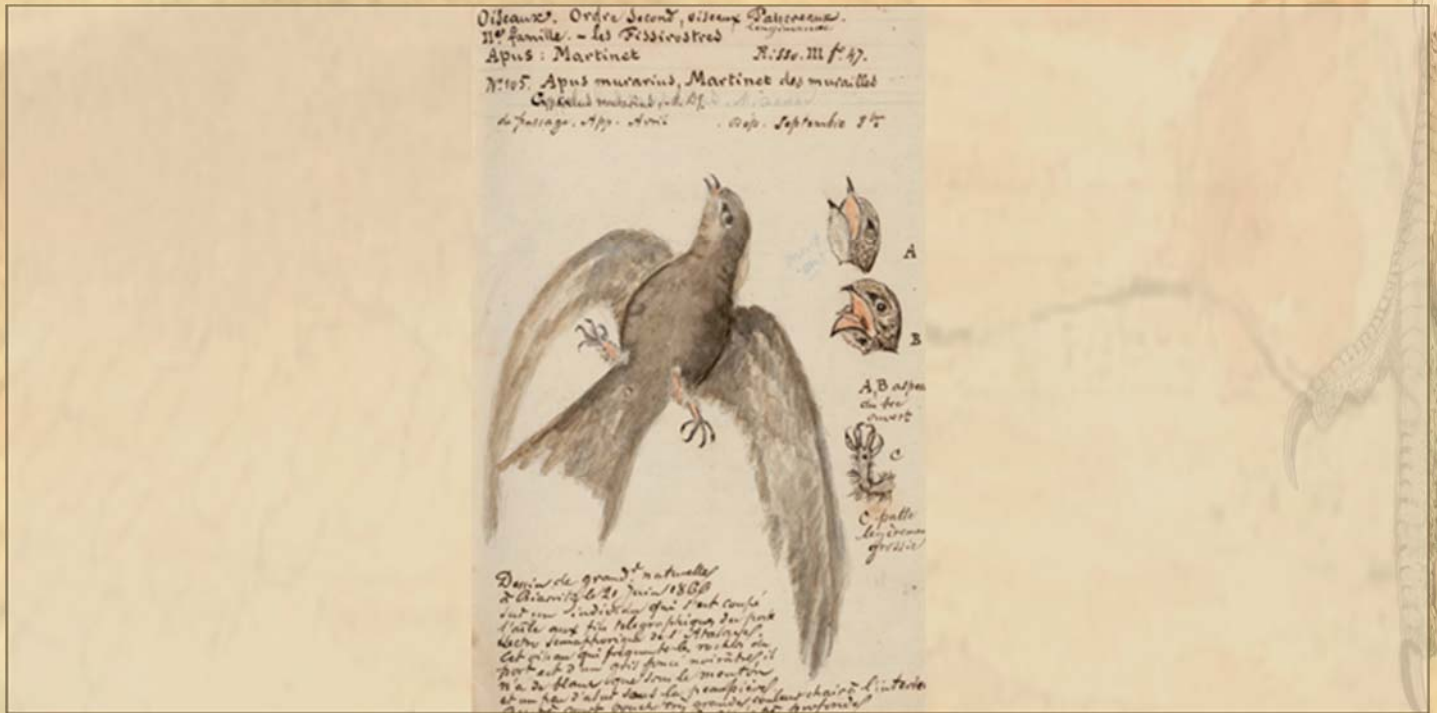 Oiseaux. Ordre Second, oiseaux Passereaux.
IIe famille. - les Fissirostres
Apus : Martinet Risso. III f. 47.
No. 105. Apus murarius, Martinet des murailles
Cypselus murarius
de passage. App. Avril . Dép. Septembre 8bre
A
B
A, B aspec
du bec
ouvert
C
C, patte
légèrement
grossie
Dessin de grandr. naturelle
à Biarritz le 21 Juin 1866
sur un individu qui s'est coupé
l'aile aux fils télégraphiques du poste
électro Semaphorique de l'Atalaye.
Cet oiseau qui fréquente les roches du
port est d'un gris foncé noirâtre, il
n'a de blanc que sous le menton
et un peu d'abus sous la paupière
très grande couleur chair à l'intérieu
profonde